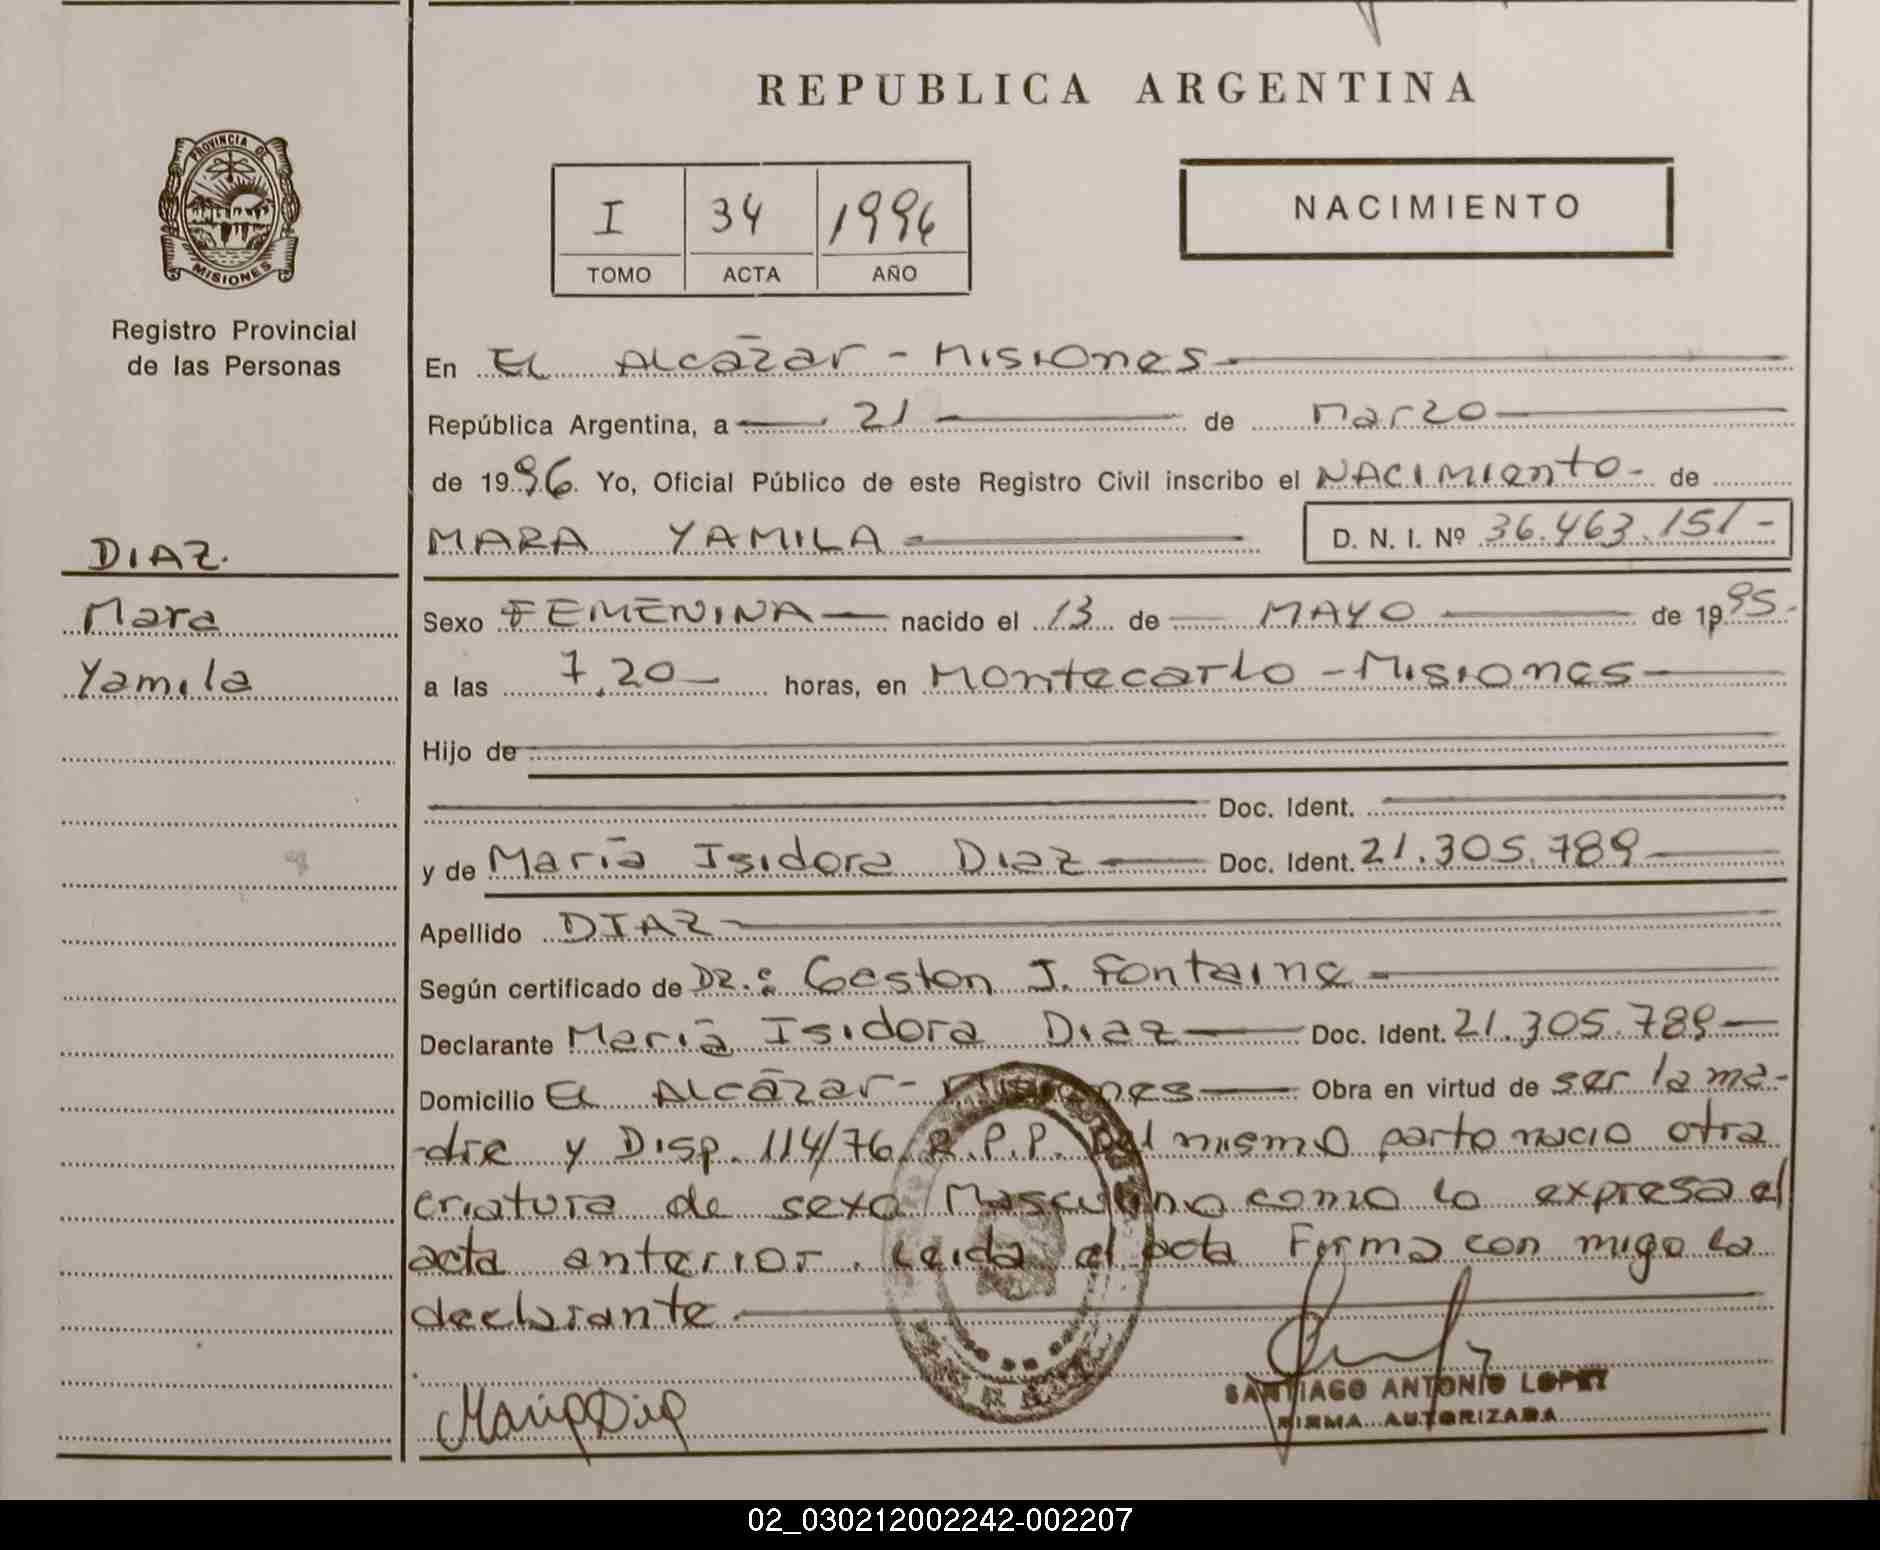 REPUBLICA ARGENTINA
PROVINCIA DE
MISIONES
Registro Provincial
de las Personas
I 34 1996
TOMO ACTA AÑO
NACIMIENTO
En El Alcázar - Misiones
República Argentina, a 21 de Marzo
de 1996. Yo, Oficial Público de este Registro Civil inscribo el NACIMIENTO - de
MARA YAMILA D. N. I. Nº 36.463.151-
DIAZ.
Mara
Yamila
Sexo FEMENINA nacido el 13 de MAYO de 1995-
a las 7,20 horas, en Montecarlo - Misiones
Hijo de
Doc. Ident.
y de María Isidora Diaz Doc. Ident. 21.305.789
Apellido DIAZ
Según certificado de DR.: Geston J. Fontaine
Declarante María Isidora Diaz Doc. Ident. 21.305.789
Domicilio El Alcázar - Misiones Obra en virtud de ser la ma-
-dre y Disp. 114/76. R.P.P. Del mismo parto nacio otra
criatura de sexo Masculino como lo expresa el
acta anterior. Leida el acta Firma con migo la
declarante
Maria Diaz
SANTIAGO ANTONIO LOPEZ
FIRMA AUTORIZADA
02_030212002242-002207